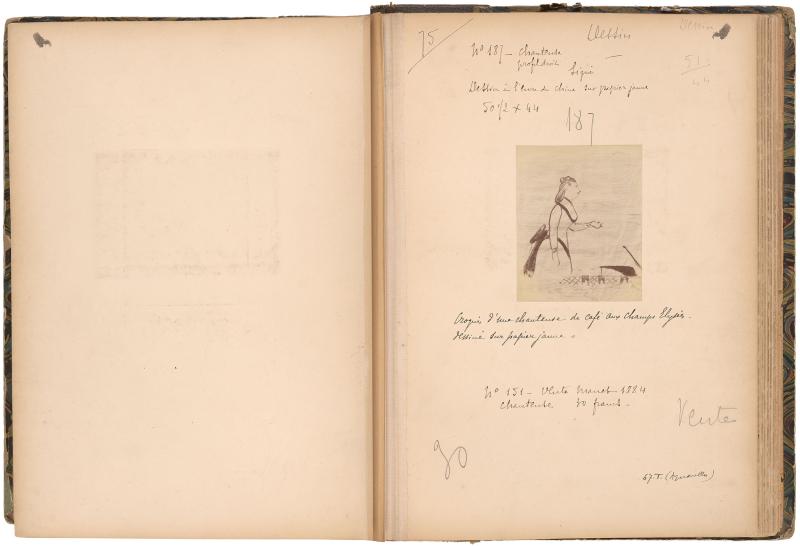 75
Dessin
Dessin
Nº 187 - Chanteuse
profil droit
Signé
51
44
Dessin à l'encre de chine sur papier jaune
50 1/2 x 44
187
Croquis d'une chanteuse de café aux Champs Elysées.
dessiné sur papier jaune.
Nº 151 - Vente Manet 1884
Chanteuse 30 francs -
Vente
30
67. T. (Aquarelles)